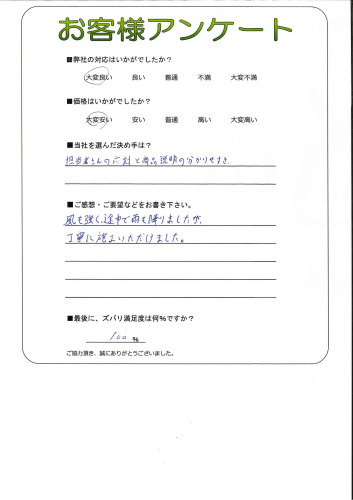 お客様アンケート
■弊社の対応はいかがでしたか?
大変良い 良い 普通 不満 大変不満
■価格はいかがでしたか?
大変安い 安い 普通 高い 大変高い
■当社を選んだ決め手は?
担当者さんの応対と商品説明の分かりやすさ
■ご感想・ご要望などをお書き下さい。
風も強く、途中で雨も降りましたが、
丁寧に施工いただけました。
■最後に、ズバリ満足度は何%ですか?
100 %
ご協力頂き、誠にありがとうございました。